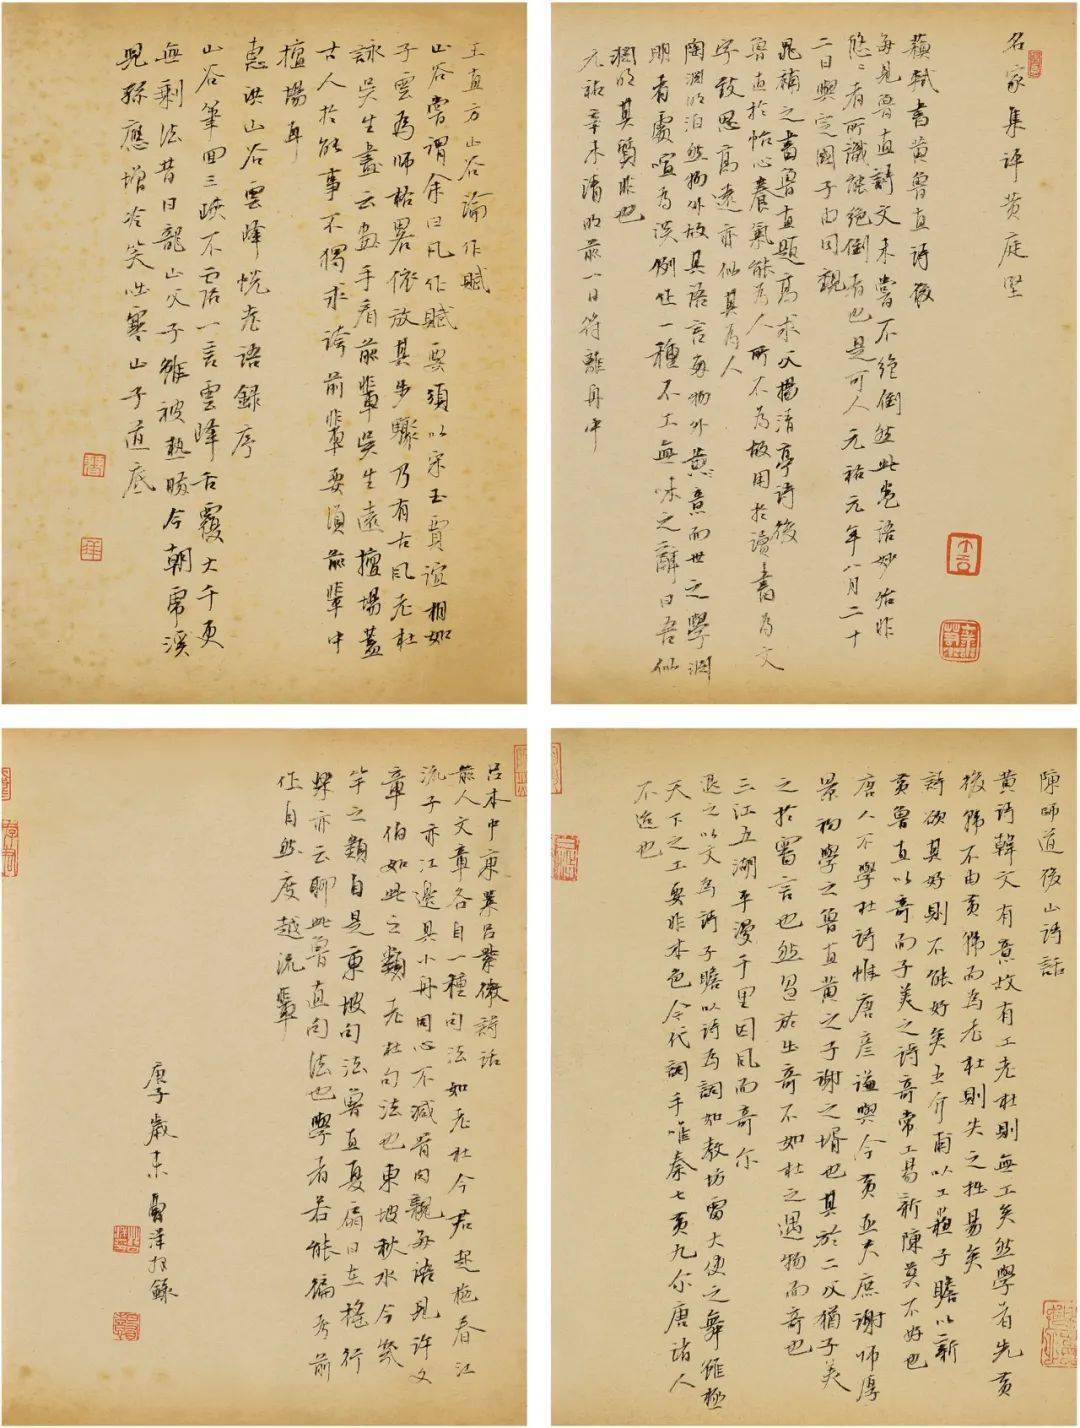 名家集評黃庭堅
蘇軾書黃魯直詩後
每見魯直詩文未嘗不絕倒然此卷語妙殆非
悠〻者所識能絕倒者已是可人元祐元年八月二十
二日與定國子由同觀
晁補之書魯直題高求父揚清亭詩後
魯直於怡心養氣能為人所不為故用於讀書為文
字致思高遠亦似其為人
陶淵明泊然物外故其語言每物外意而世之學淵
明者處喧為淡例作一種不工無味之辭曰吾似
淵明其質非也
元祐辛未清明前一日符離舟中
王直方山谷論作賦
山谷嘗謂余曰凡作賦要須以宋玉賈誼相如
子雲為師枯畧依放其步驟乃有古風老杜
詠吳生畫云畫手看前輩吳生遠擅場蓋
古人於能事不獨求誇前輩要須前輩中
擅場耳
惠洪山谷雲峰悅老語錄序
山谷筆回三峽不露一言雲峰舌覆大千更
無剩法昔日龍山父子雖被熱瞞今朝虎溪
兒孫應增冷笑咄寒山子道底
陳師道後山詩話
黃詩韓文有意故有工老杜則無工矣然學者先黃
後韓不由黃韓而為老杜則失之拙易矣
詩欲其好則不能好矣王介甫以工蘇子瞻以新
黃魯直以奇而子美之詩奇常工易新陳莫不好也
唐人不學杜詩惟唐彥謙與今黃亞夫庶謝師厚
景初學之魯直黃之子謝之婿也其於二父猶子美
之於審言也然過於出奇不如杜之遇物而奇也
三江五湖平漫千里因風而奇尔
退之以文為詩子瞻以詩為詞如教坊雷大使之舞雖極
天下之工要非本色今代詞手唯秦七黃九尔唐諸人
不迨也
呂本中東萊呂紫微詩話
前人文章各自一種句法如老杜今君起柂春江
流予亦江邊具小舟同心不減骨肉親每語見許文
章伯如此之類老杜句法也東坡秋水今幾
竿之類自是東坡句法魯直夏扇日在搖行
樂亦云聊此魯直句法也學者若能徧考前
作自然度越流輩
庚子歲末曾洋抄錄